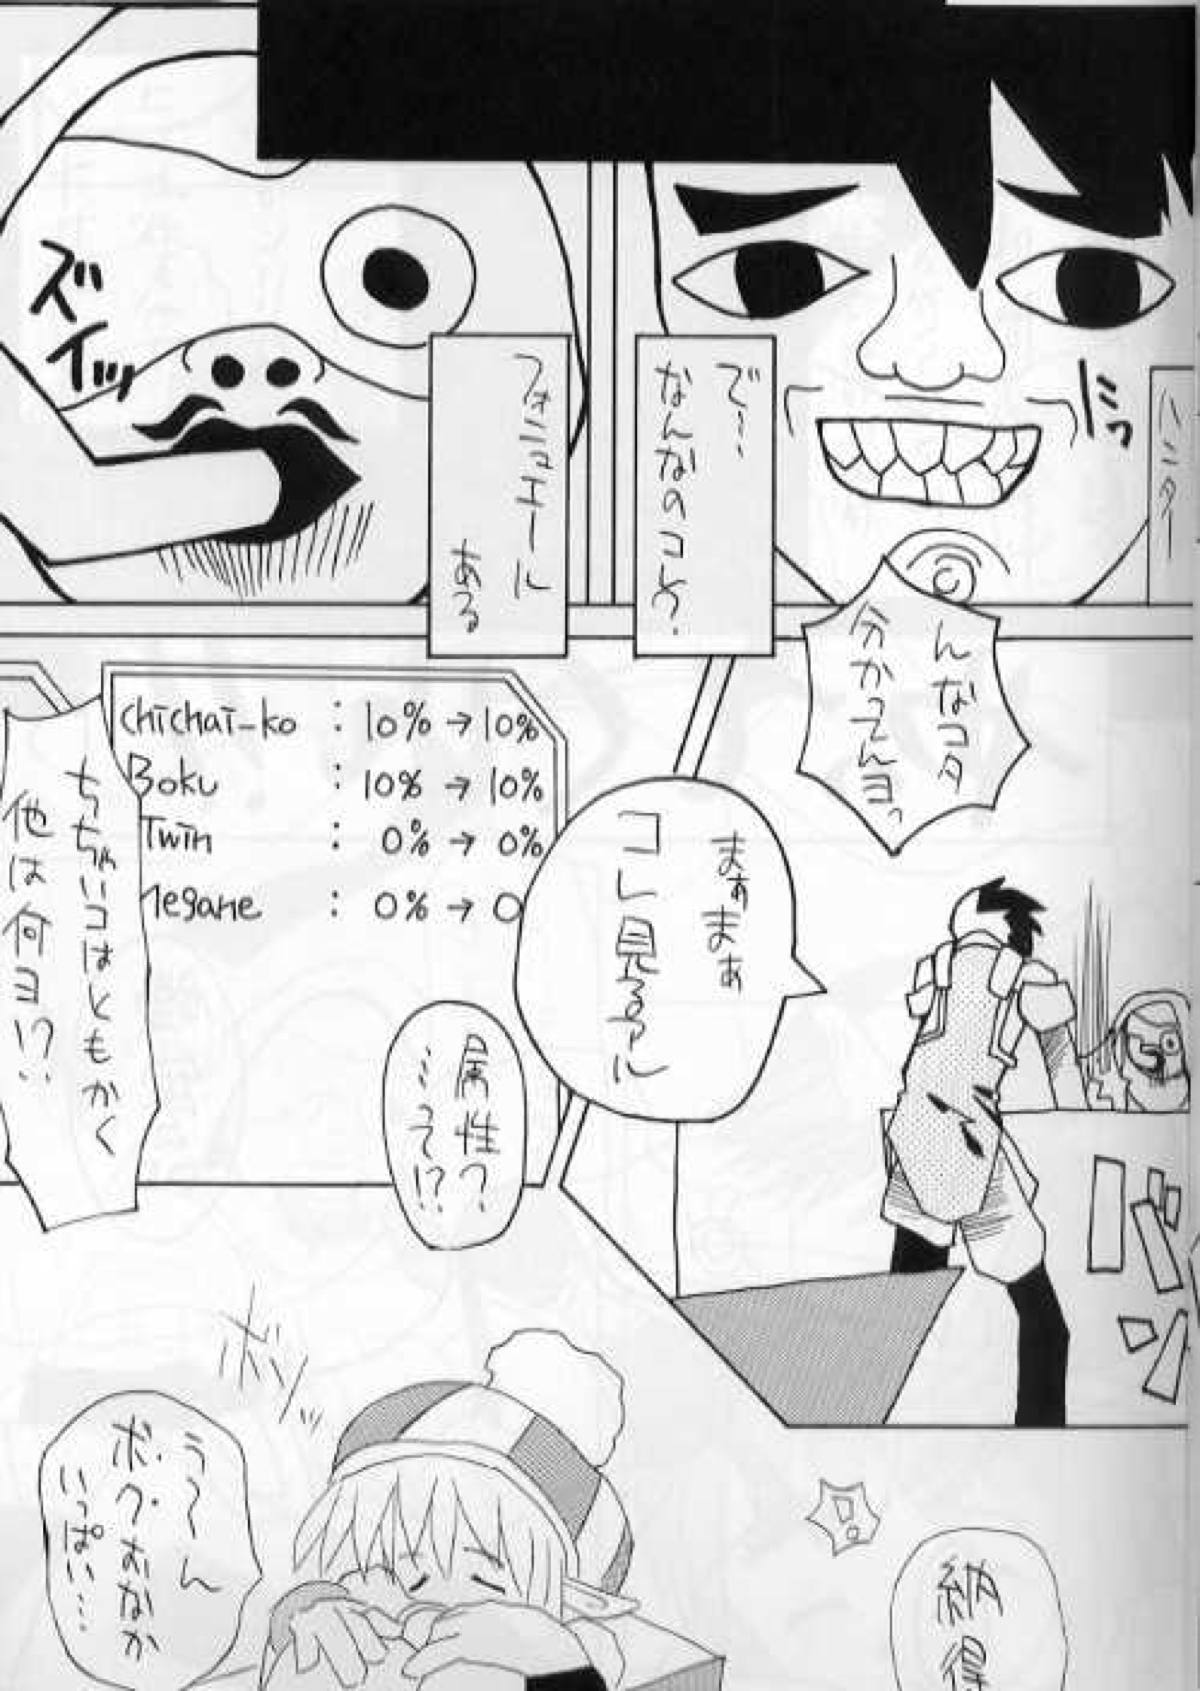 ハンター
ニッ
で…
なんなのコレ?
フォニュエール
ある
ズイッ
んなコタ
分かってんヨっ
バンッ
まぁまぁ
コレ見るアル
chichai-ko : 10% → 10%
Boku : 10% → 10%
Twin : 0% → 0%
megane : 0% → 0
属性?
…って!?
ちちゃいコはともかく
他は何ヨ!?
納得
!
ボソッ
う～ん
ボク・おなか
いっぱい…